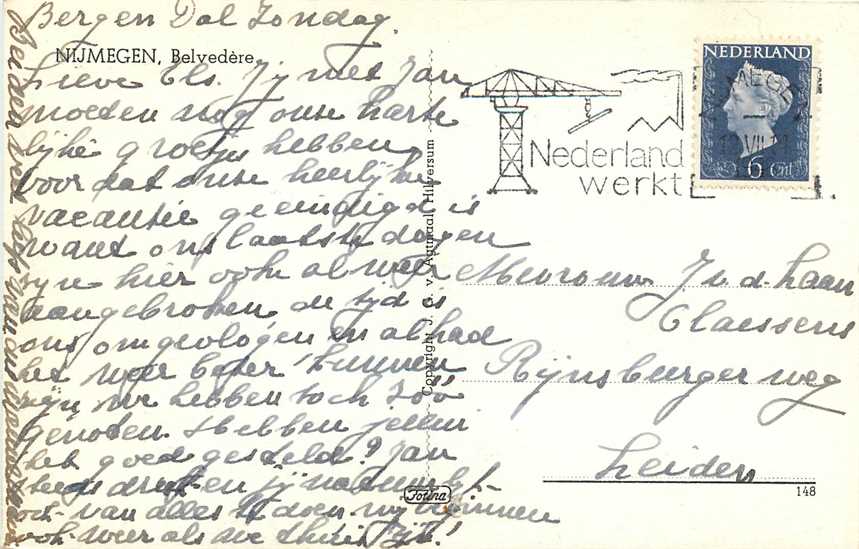 Bergen Dal Zondag
NIJMEGEN, Belvedère
Lieve Els. Jij met Jan
moeten nog onze harte
lijke groetjes hebben
voordat onze heerlijke
vacantie geeindigd is
want ons laatste dagen
zijn hier ook al weer
aangebroken de tijd is
ons omgevlogen en al had
het weer beter kunnen
zijn we hebben toch zóó
genoten. Hebben jullie
het goed gesteld? Jan
druk en jij natuurlijk
ook van alles te doen. wij
ook weer als we thuis zijn!
Copyright J. C. v. Agtmaal, Hilversum
Fotina
NEDERLAND
6 Cnt
Nederland
werkt
Mevrouw J. v. d. Haan
Claessens
Rijnsburgerweg
Leiden
148